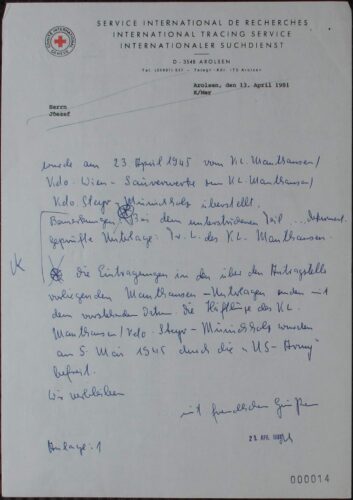 SERVICE INTERNATIONAL DE RECHERCHES
INTERNATIONAL TRACING SERVICE
INTERNATIONALER SUCHDIENST
D - 3548 AROLSEN
Arolsen, den 13. April 1981
K/Mar
Herrn
Józef
wurde am 23 April 1945 vom KL. Mauthausen/
Kdo. Wien - Saurerwerke zum KL. Mauthausen/
Kdo Steyr - Münichholz überstellt.
Bemerkungen: Bei dem unterstrichenen Teil ... Dokument.
Geprüfte Unterlage: des KL Mauthausen.
Die Eintragungen in den über den Antragsteller
vorliegenden Mauthausen - Unterlagen enden mit
dem vorstehenden Datum. Die Häftlinge des KL
Mauthausen/Kdo. Steyr - Münichholz wurden
am 5. Mai 1945 durch die "US - Army"
befreit.
Wir verbleiben
mit freundlichen Grüßen
Anlage: 1
000014